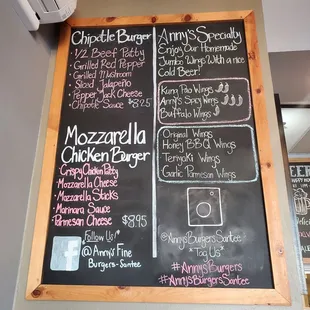 Chipotle Burger
1/2 Beef Patty
Grilled Red Pepper
Grilled Mushroom
Sliced Jalapeño
Pepper Jack Cheese
Chipotle Sauce $8.25
Mozzarella
Chicken Burger
Crispy Chicken Patty
Mozzarella Cheese
Mozzarella Sticks
Marinara Sauce
Parmesan Cheese $8.95
Follow Us!
@Anny's Fine
Burgers-Santee
Anny's Specialty
Enjoy Our Homemade
Jumbo Wings With a nice
Cold Beer!
Kung Pao Wings
Anny's Spicy Wings
Buffalo Wings
Original Wings
Honey BBQ Wings
Teriyaki Wings
Garlic Parmesan Wings
@AnnysBurgersSantee
"Tag Us"
#AnnysBurgers
#AnnysBurgersSantee